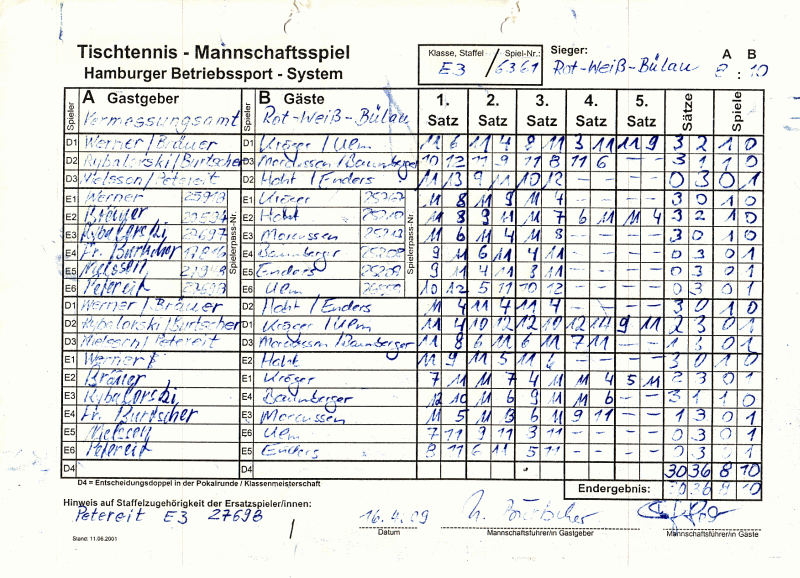 Tischtennis - Mannschaftsspiel
Hamburger Betriebssport - System
Klasse, Staffel Spiel-Nr.:
E3 / 6361
Sieger: A B
Rot-Weiß-Bülau 8 : 10
Spieler A Gastgeber Spieler B Gäste 1. Satz 2. Satz 3. Satz 4. Satz 5. Satz Sätze Spiele
Vermessungsamt Rot-Weiß-Bülau
D1 Werner / Bräuer D1 Kröger / Ulm 11 6 11 4 8 11 3 11 11 9 3 2 1 0
D2 Rybalorski / Burtscher D3 Marcussen / Baumberger 10 12 11 9 11 8 11 6 – – 3 1 1 0
D3 / Petereit D2 Haht / Enders 11 13 9 11 10 12 – – – – 0 3 0 1
E1 Werner E1 Kröger 11 8 11 9 11 4 – – – – 3 0 1 0
E2 Bräuer E2 Haht 11 8 9 11 11 7 6 11 11 4 3 2 1 0
E3 Rybalorski E3 Marcussen 11 6 11 4 11 8 – – – – 3 0 1 0
E4 Fr. Burtscher E4 Baumberger 9 11 6 11 4 11 – – – – 0 3 0 1
E5 E5 Enders 9 11 4 11 3 11 – – – – 0 3 0 1
E6 Petereit E6 Ulm 10 12 5 11 10 12 – – – – 0 3 0 1
Spielerpass-Nr. Spielerpass-Nr.
D1 Werner / Bräuer D2 Haht / Enders 11 4 11 4 11 4 – – – – 3 0 1 0
D2 Rybalorski / Burtscher D1 Kröger / Ulm 11 4 10 12 12 10 12 14 9 11 2 3 0 1
D3 / Petereit D3 Marcussen / Baumberger 11 8 6 11 6 11 7 11 – – 1 3 0 1
E1 Werner E2 Haht 11 9 11 5 11 – – – – 3 0 1 0
E2 Bräuer E1 Kröger 7 11 11 7 4 11 11 4 5 11 2 3 0 1
E3 Rybalorski E4 Baumberger 12 10 11 6 9 11 11 6 – – 3 1 1 0
E4 Fr. Burtscher E3 Marcussen 11 5 11 13 6 11 9 11 – – 1 3 0 1
E5 E6 Ulm 7 11 9 11 3 11 – – – – 0 3 0 1
E6 Petereit E5 Enders 8 11 6 11 5 11 – – – – 0 3 0 1
D4 D4 30 36 8 10
D4 = Entscheidungsdoppel in der Pokalrunde / Klassenmeisterschaft
Endergebnis: 30 36 8 10
Hinweis auf Staffelzugehörigkeit der Ersatzspieler/innen:
Petereit E3 27698
16.4.09
Datum Mannschaftsführer/in Gastgeber Mannschaftsführer/in Gäste
Stand: 11.06.2001